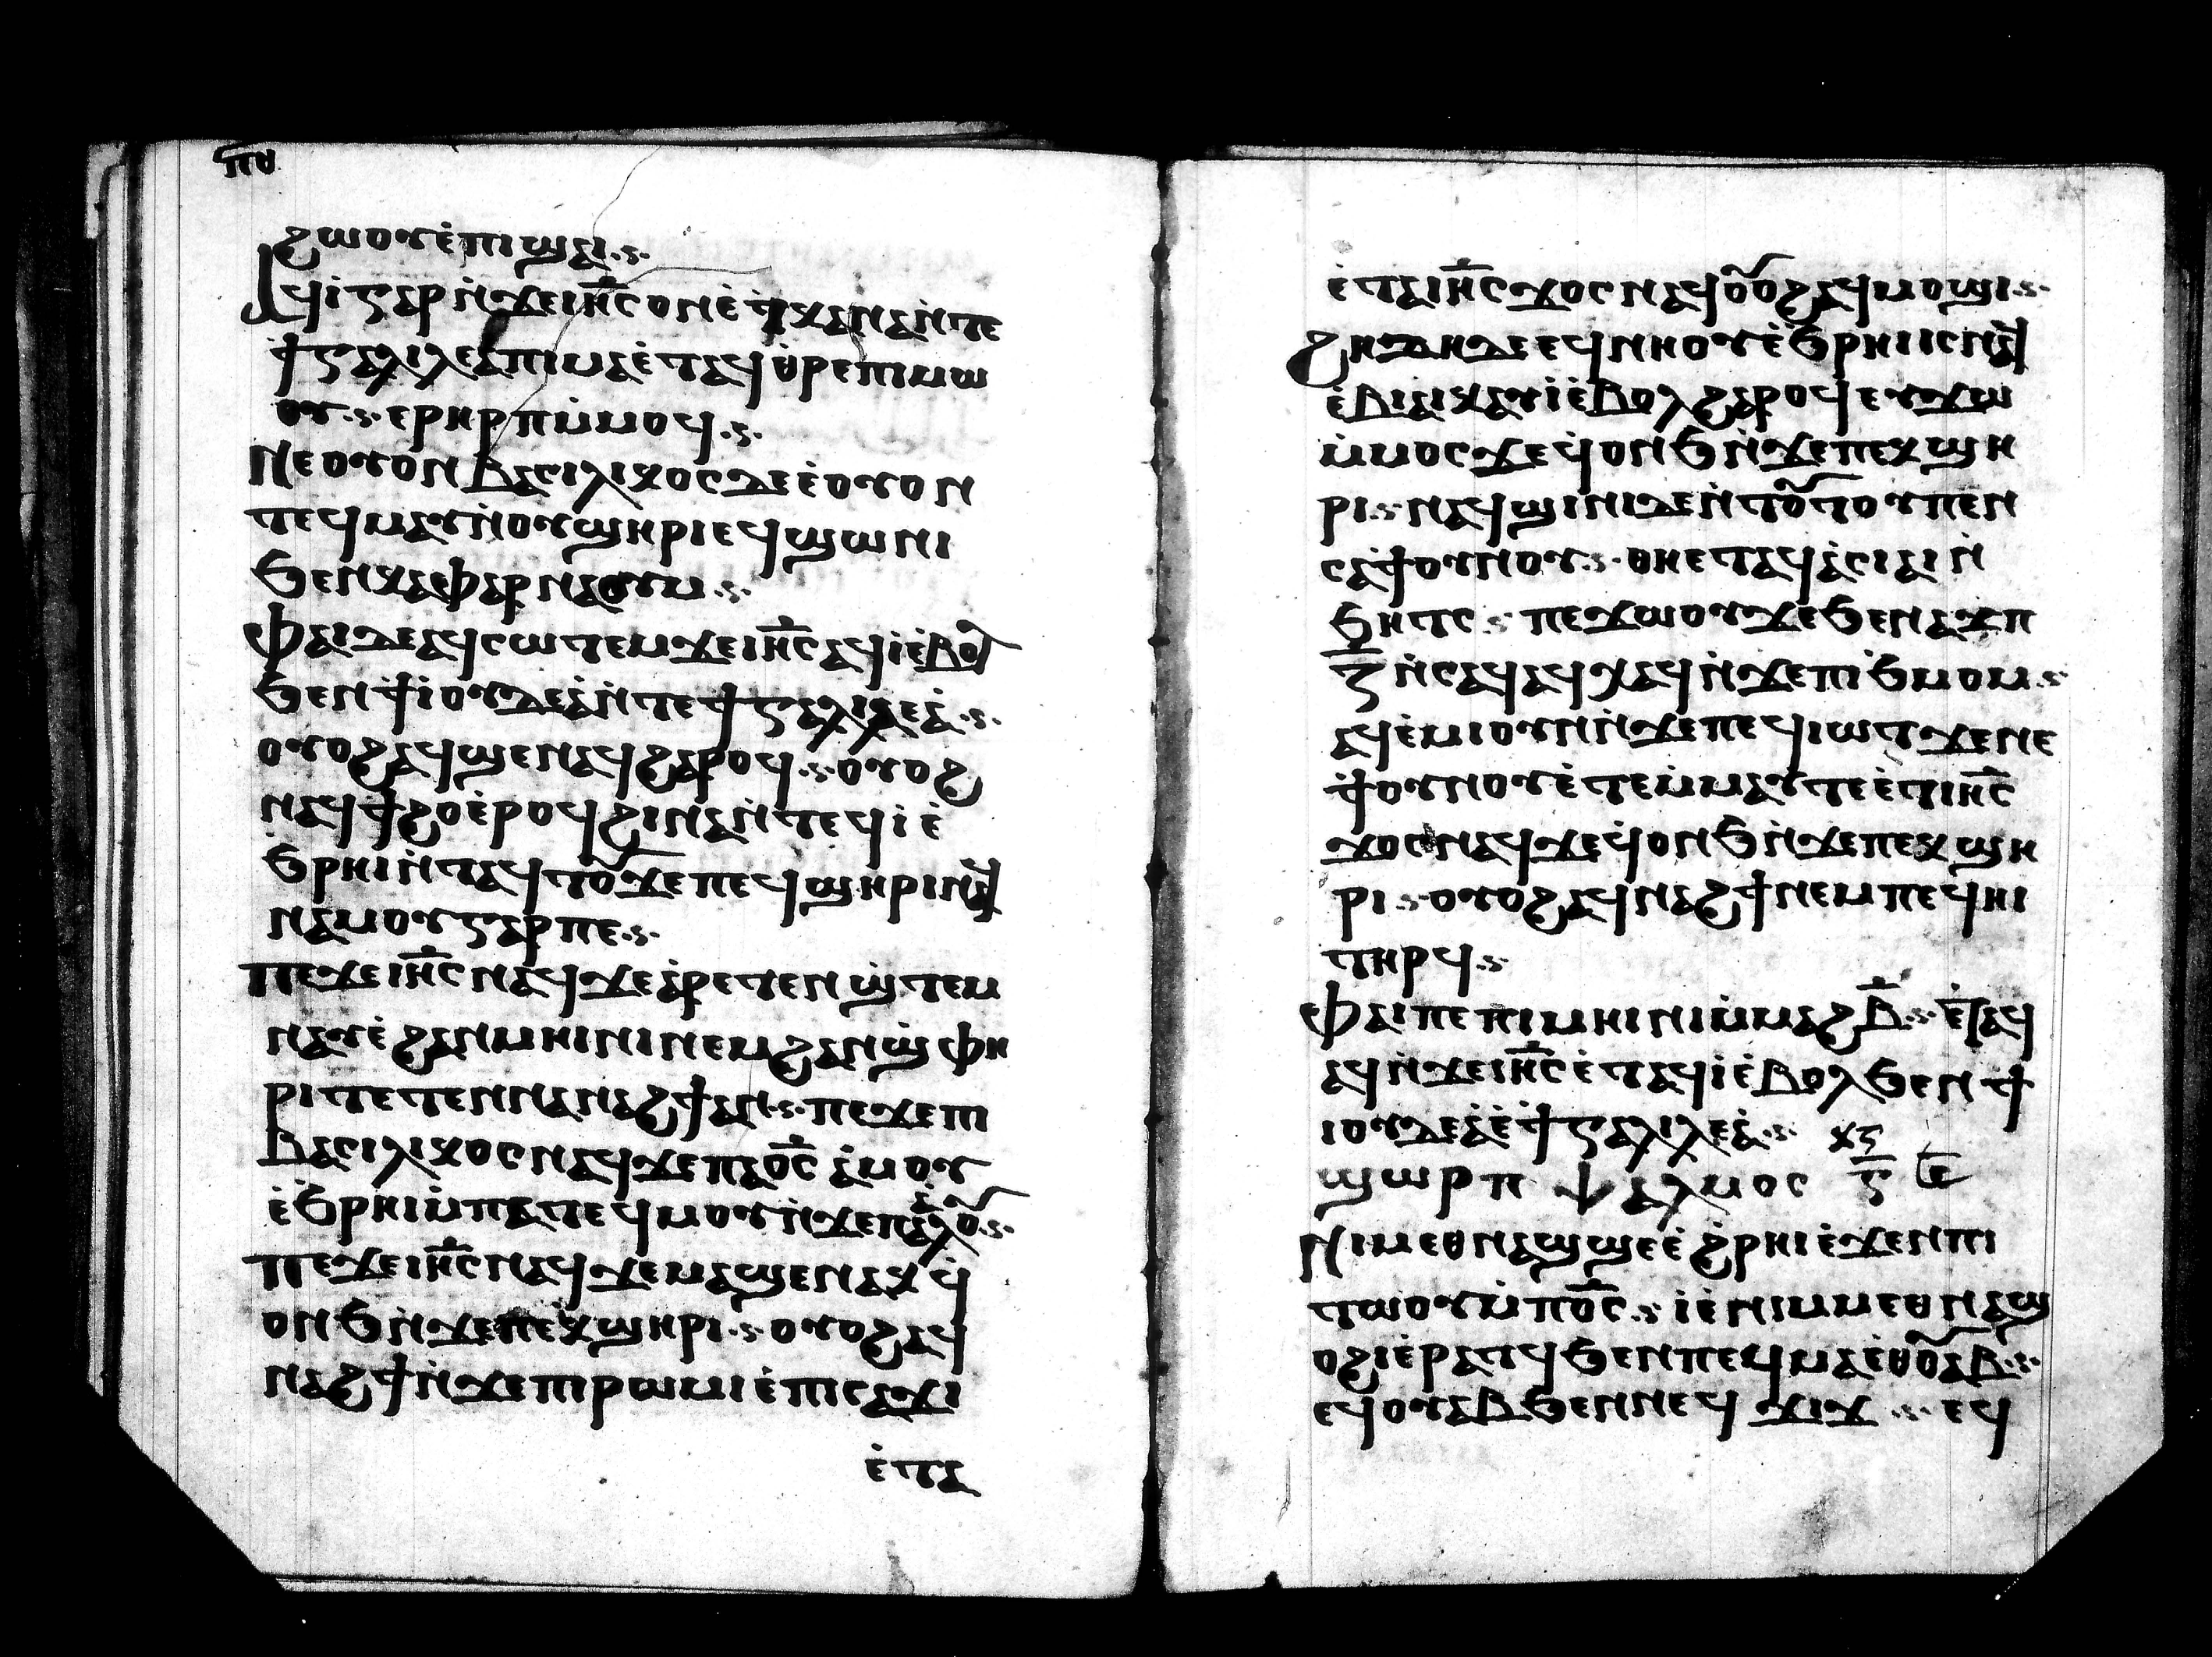 ⲡⲑ
ϩⲱⲟⲩⲉ̀ⲡⲓϣⲁⲓ.ⲋ.
ⲁϥⲓ̀ⲅⲁⲣⲛ̀ϫⲉⲓⲏ̅ⲥ̅ⲟⲛⲉ̀ϯⲕⲁⲛⲁⲛ̀ⲧⲉ
ϯⲅⲁⲗⲓⲗⲉⲁ̀ⲡⲓⲙⲁⲉ̀ⲧⲁϥⲑⲣⲉⲡⲓⲙⲱ
ⲟⲩ.ⲋ.ⲉⲣⲏⲣⲡⲙ̀ⲙⲟϥ.ⲋ.
ⲛⲉⲟⲩⲟⲛⲃⲁⲥⲓⲗⲓⲕⲟⲥⲇⲉⲉ̀ⲟⲩⲟⲛ
ⲧⲉϥⲙⲁⲩⲛ̀ⲟⲩϣⲏⲣⲓⲉϥϣⲱⲛⲓ
ϧⲉⲛⲕⲁⲫⲁⲣⲛⲁⲟⲩⲙ.ⲋ.
ⲫⲁⲓⲇⲉⲁϥⲥⲱⲧⲉⲙϫⲉⲓⲏ̅ⲥ̅ⲁϥⲓ̀ⲉ̀ⲃⲟⲗ
ϧⲉⲛϯⲓⲟⲩⲇⲉⲁ̀ⲛ̀ⲧⲉϯⲅⲁⲗⲓⲗⲉⲁ̀.ⲋ.
ⲟⲩⲟϩⲁϥϣⲉⲛⲁϥϩⲁⲣⲟϥ.ⲋ.ⲟⲩⲟϩ
ⲛⲁϥϯϩⲟⲉ̀ⲣⲟϥϩⲓⲛⲁⲛ̀ⲧⲉϥⲓ̀ⲉ̀
ϧⲣⲏⲓⲛ̀ⲧⲁϥⲧⲟⲩϫⲉⲡⲉϥϣⲏⲣⲓⲛⲁϥ
ⲛⲁⲙⲟⲩⲅⲁⲣⲡⲉ.ⲋ.
ⲡⲉϫⲉⲓⲏ̅ⲥ̅ⲛⲁϥϫⲉⲁ̀ⲣⲉⲧⲉⲛϣ̀ⲧⲉⲙ
ⲛⲁⲩⲉ̀ϩⲁⲛⲙⲏⲓⲛⲓⲛⲉⲙϩⲁⲛϣ̀ⲫⲏ
ⲣⲓⲧⲉⲧⲉⲛⲛⲁⲛⲁϩϯⲁⲛ.ⲋ.ⲡⲉϫⲉⲡⲓ
ⲃⲁⲥⲓⲗⲓⲕⲟⲥⲛⲁϥϫⲉⲡⲁⲟ̅ⲥ̅ⲁ̀ⲙⲟⲩ
ⲉ̀ϧⲣⲏⲓⲙ̀ⲡⲁⲧⲉϥⲙⲟⲩⲛ̀ϫⲉⲡⲁⲁ̀ⲗⲟⲩ.ⲋ.
ⲡⲉϫⲉⲓⲏ̅ⲥ̅ⲛⲁϥϫⲉⲙⲁϣⲉⲛⲁⲕϥ̀
ⲟⲛϧⲛ̀ϫⲉⲡⲉⲕϣⲏⲣⲓ.ⲋ.ⲟⲩⲟϩⲁϥ
ⲛⲁϩϯⲛ̀ϫⲉⲡⲓⲣⲱⲙⲓⲉ̀ⲡⲓⲥⲁϫⲓ
ⲉ̀ⲧⲁ
ⲉ̀ⲧⲁⲓⲏ̅ⲥ̅ϫⲟⲥⲛⲁϥⲟⲩⲟϩⲁϥⲙⲟϣⲓ.ⲋ.
ϩⲏⲇⲏⲇⲉⲉϥⲛⲏⲟⲩⲉ̀ϧⲣⲏⲓⲓⲥⲛⲉϥ
ⲉ̀ⲃⲓⲁⲓⲕⲁⲩⲓ̀ⲉ̀ⲃⲟⲗϩⲁⲣⲟϥⲉⲩϫⲱ
ⲙ̀ⲙⲟⲥϫⲉϥ̀ⲟⲛϧⲛ̀ϫⲉⲡⲉⲕϣⲏ
ⲣⲓ.ⲋ.ⲛⲁϥϣⲓⲛⲓⲇⲉⲛ̀ⲧⲟⲩⲧⲟⲩⲡⲉⲛ
ⲥⲁϯⲟⲩⲛⲟⲩ.ⲋ.ⲑⲏⲉⲧⲁϥⲁ̀ⲥⲓⲁⲓⲛ̀
ϧⲏⲧⲥ.ⲋ.ⲡⲉϫⲱⲟⲩϫⲉϧⲉⲛⲁϫⲡ
ⲍ̅ⲛ̀ⲥⲁϥⲁϥⲭⲁϥⲛ̀ϫⲉⲡⲓϧⲙⲟⲙ.ⲋ.
ⲁϥⲉ̀ⲙⲓⲟⲩⲛⲛ̀ϫⲉⲡⲉϥⲓⲱⲧϫⲉⲛⲉ
ϯⲟⲩⲛⲟⲩⲉ̀ⲧⲉⲙ̀ⲙⲁⲩⲧⲉⲉ̀ⲧⲓⲏ̅ⲥ̅
ϫⲟⲥⲛⲁϥϫⲉϥ̀ⲟⲛϧⲛ̀ϫⲉⲡⲉⲕϣⲏ
ⲣⲓ.ⲋ.ⲟⲩⲟϩⲁϥⲛⲁϩϯⲛⲉⲙⲡⲉϥⲏⲓ
ⲧⲏⲣϥ.ⲋ.
ⲫⲁⲓⲡⲉⲡⲓⲙⲏⲓⲛⲓⲙ̀ⲙⲁϩⲃ̅.ⲋ.ⲉ̀ⲧⲁϥ
ⲁϥⲛ̀ϫⲉⲓⲏ̅ⲥ̅ⲉ̀ⲧⲁϥⲓ̀ⲉ̀ⲃⲟⲗϧⲉⲛϯ
ⲓⲟⲩⲇⲉⲁ̀ⲉ̀ϯⲅⲁⲗⲓⲗⲉⲁ̀.ⲋ. ⲕⲅ
ϣⲱⲣⲡ ⲯⲁⲗⲙⲟⲥ ⲅ̅ ⲉ̅
ⲛⲓⲙⲉⲑⲛⲁϣϣⲉⲉ̀ϩ̀ⲣⲏⲓⲉ̀ϫⲉⲛⲡⲓ
ⲧⲱⲟⲩⲙ̀ⲡⲟ̅ⲥ̅.ⲋ.ⲓ̀ⲉ̀ⲛⲓⲙⲙⲉⲑⲛⲁϣ
ⲟϩⲓⲉ̀ⲣⲁⲧϥϧⲉⲛⲡⲉϥⲙⲁⲉ̀ⲑⲟⲩⲁⲃ.ⲋ.
ⲉϥⲟⲩⲁⲃϧⲉⲛⲛⲉϥϫⲓϫ.ⲋ.ⲉϥ